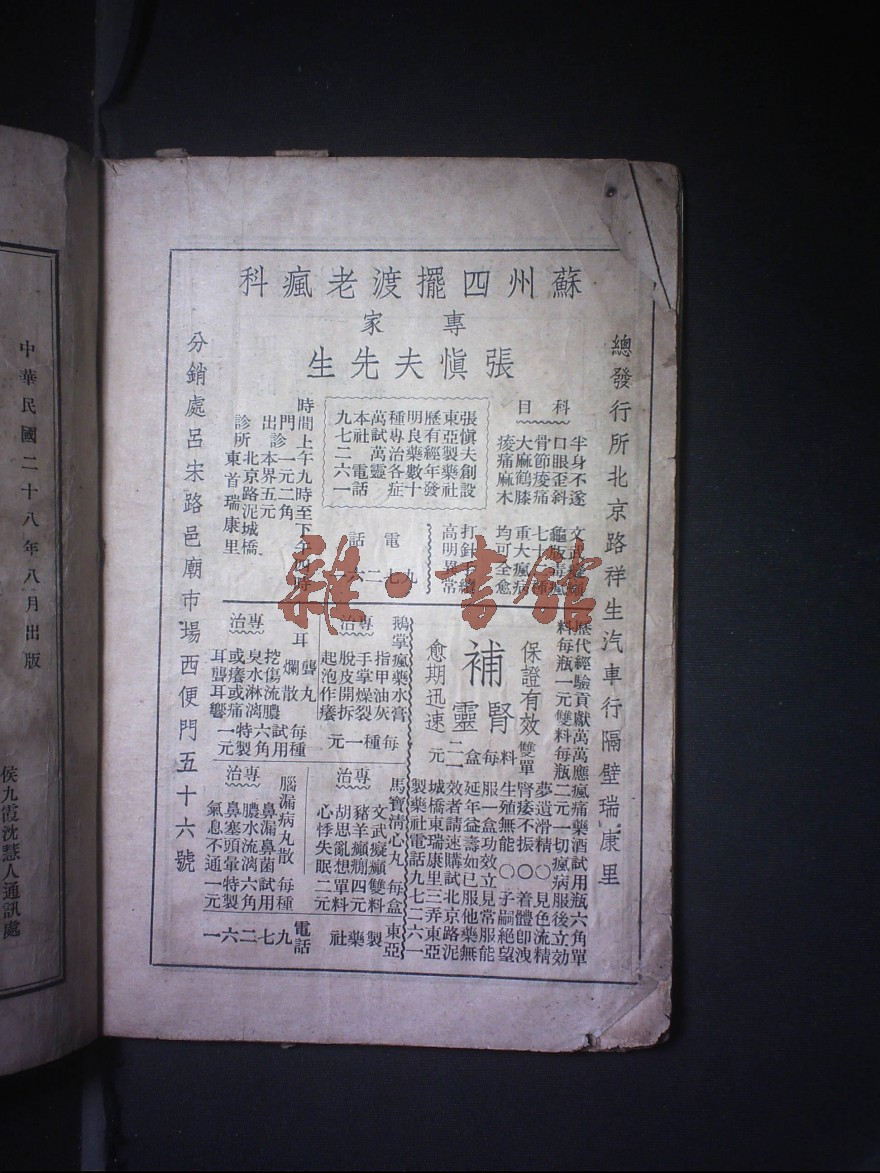 蘇州四擺渡老瘋科
專家
張愼夫先生
總發行所北京路祥生汽車行隔壁瑞康里
科目
半身不遂
口眼歪斜
骨節痠痛
大麻鶴膝
痠痛麻木
七十
重大瘋病
均可全愈
打針
高明異常
張愼夫創設
東亞製藥社
歷有經年發
明良藥數十
種專治各症
萬試萬靈
本社電話
九七二六一
時間上午九時至下午四時
門診一元二角
出診本界五元
診所北京路泥城橋
東首瑞康里
電話
九七二六
歷代經驗貢獻萬萬應瘋痛藥酒試用瓶六角單
料每瓶一元雙料每瓶二元一切瘋病服後立効
保證有效
補腎靈
愈期迅速
雙單料每盒二一元
夢遺滑精〇見色流精
腎痿不振〇着體卽洩
生殖無能〇子嗣絕望
服一盒功效立見常服能
延年益壽如已服他藥無
效者請速購試北京路泥
城橋東瑞康里三弄東亞
製藥社電話九七二六一
鵝掌瘋藥水膏
專治
指甲油灰
手掌燥裂
脫皮開拆
起泡作癢
每種一元
耳聾丸
爛散
專治
挖傷流膿
臭水淋漓
或癢或痛
耳聾耳響
每種試用六角特製一元
馬寶淸心丸
專治
文武癡癲
豬羊癲癇
胡思亂想
心悸失眠
每盒雙料四元單料二元
腦漏病丸散
專治
鼻漏鼻菌
膿水流漓
鼻塞頭暈
氣息不通
每種試用六角特製一元
東亞製藥社
電話九七二六一
分銷處呂宋路邑廟市場西便門五十六號
中華民國二十八年八月出版
侯九霞沈慧人通訊處
雜·書館